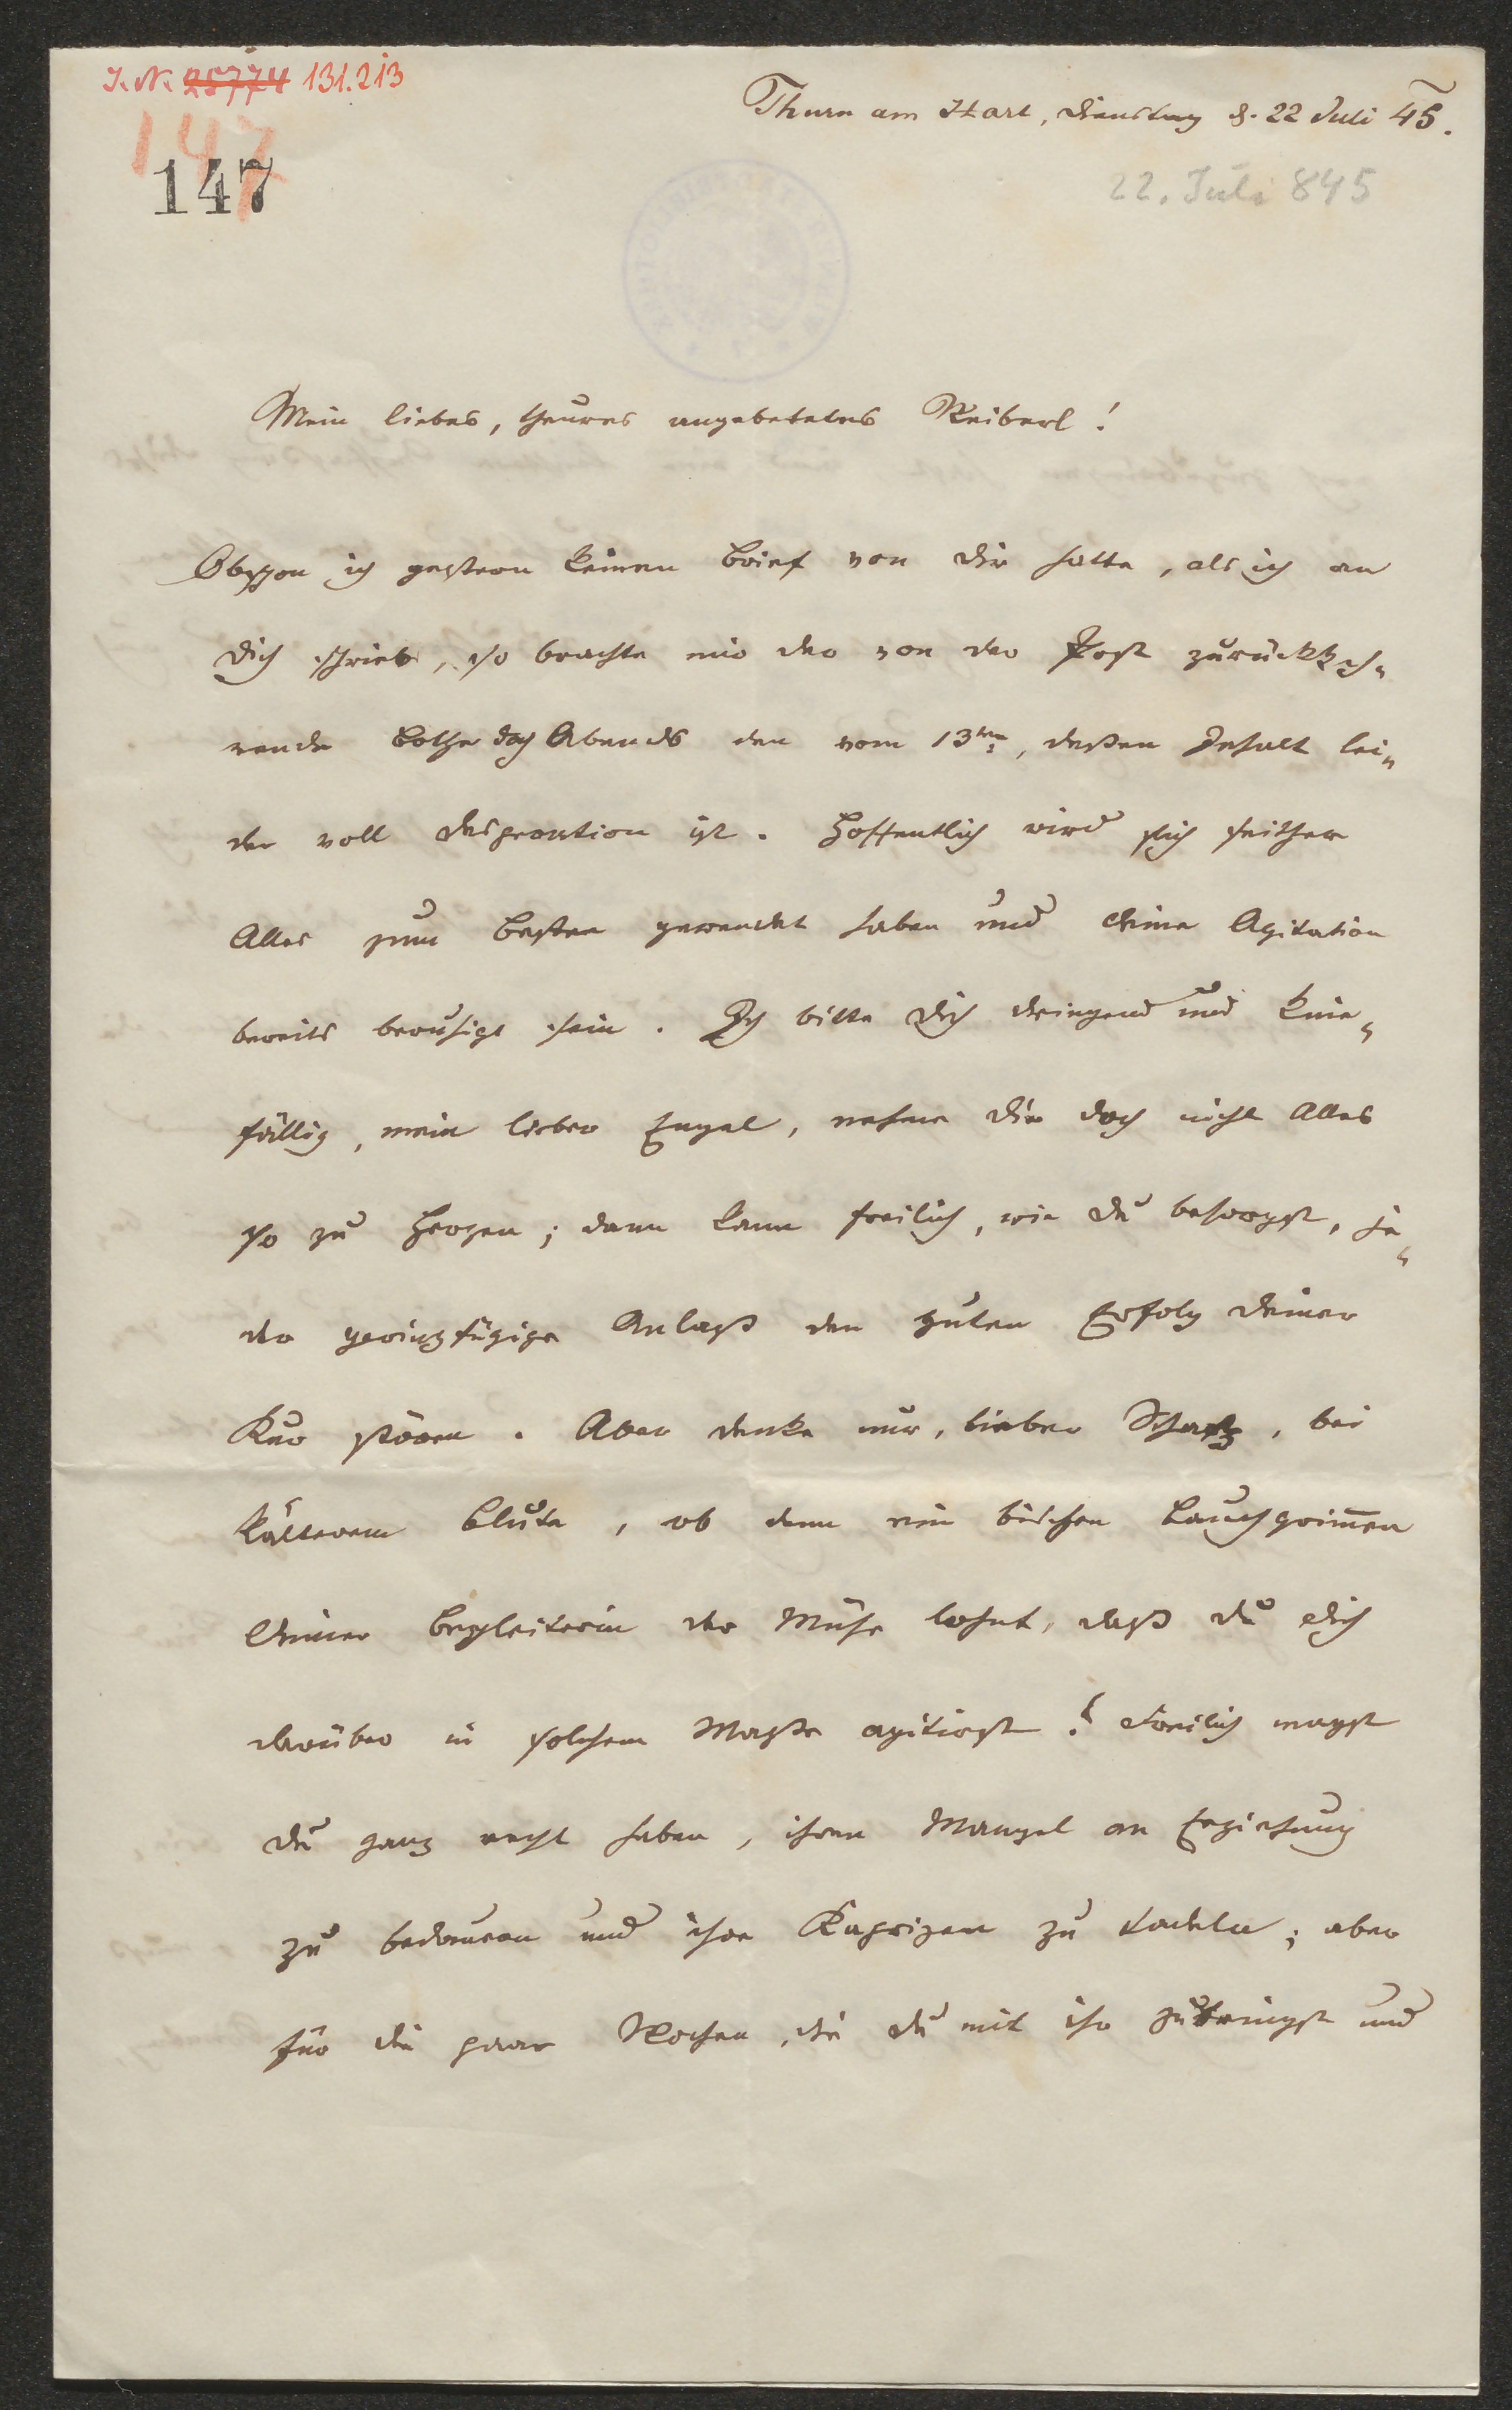 I. N. 25774 131.213
147
147
Thurn am Hart, Dienstag d. 22 Juli 45.
22. Juli 845
Mein liebes, theures angebetetes Weiberl!
Obschon ich gestern keinen Brief von dir hatte, als ich an
dich schrieb, so brachte mir der von der Post zurückkeh-
rende Bothe doch Abends den vom 13ten, deßen Inhalt lei-
der voll Desperation ist. Hoffentlich wird sich seither
Alles zum Besten gewendet haben und deine Agitation
bereits beruhigt sein. Ich bitte dich dringend und knie-
fällig, mein lieber Engel, nehme dir doch nicht Alles
so zu Herzen; dann kann freilich, wie du besorgst, je-
der geringfügige Anlaß den guten Erfolg deiner
Kur stören. Aber denke nur, lieber Schatz, bei
kälterem Blute, ob denn ein bischen Bauchgrimmen
deiner Begleiterin der Mühe lohnt, daß du dich
darüber in solchem Maße agitirst! Freilich magst
du ganz recht haben, ihren Mangel an Erziehung
zu bedauern und ihre Kaprizen zu tadeln; aber
für die paar Wochen, die du mit ihr zubringst und